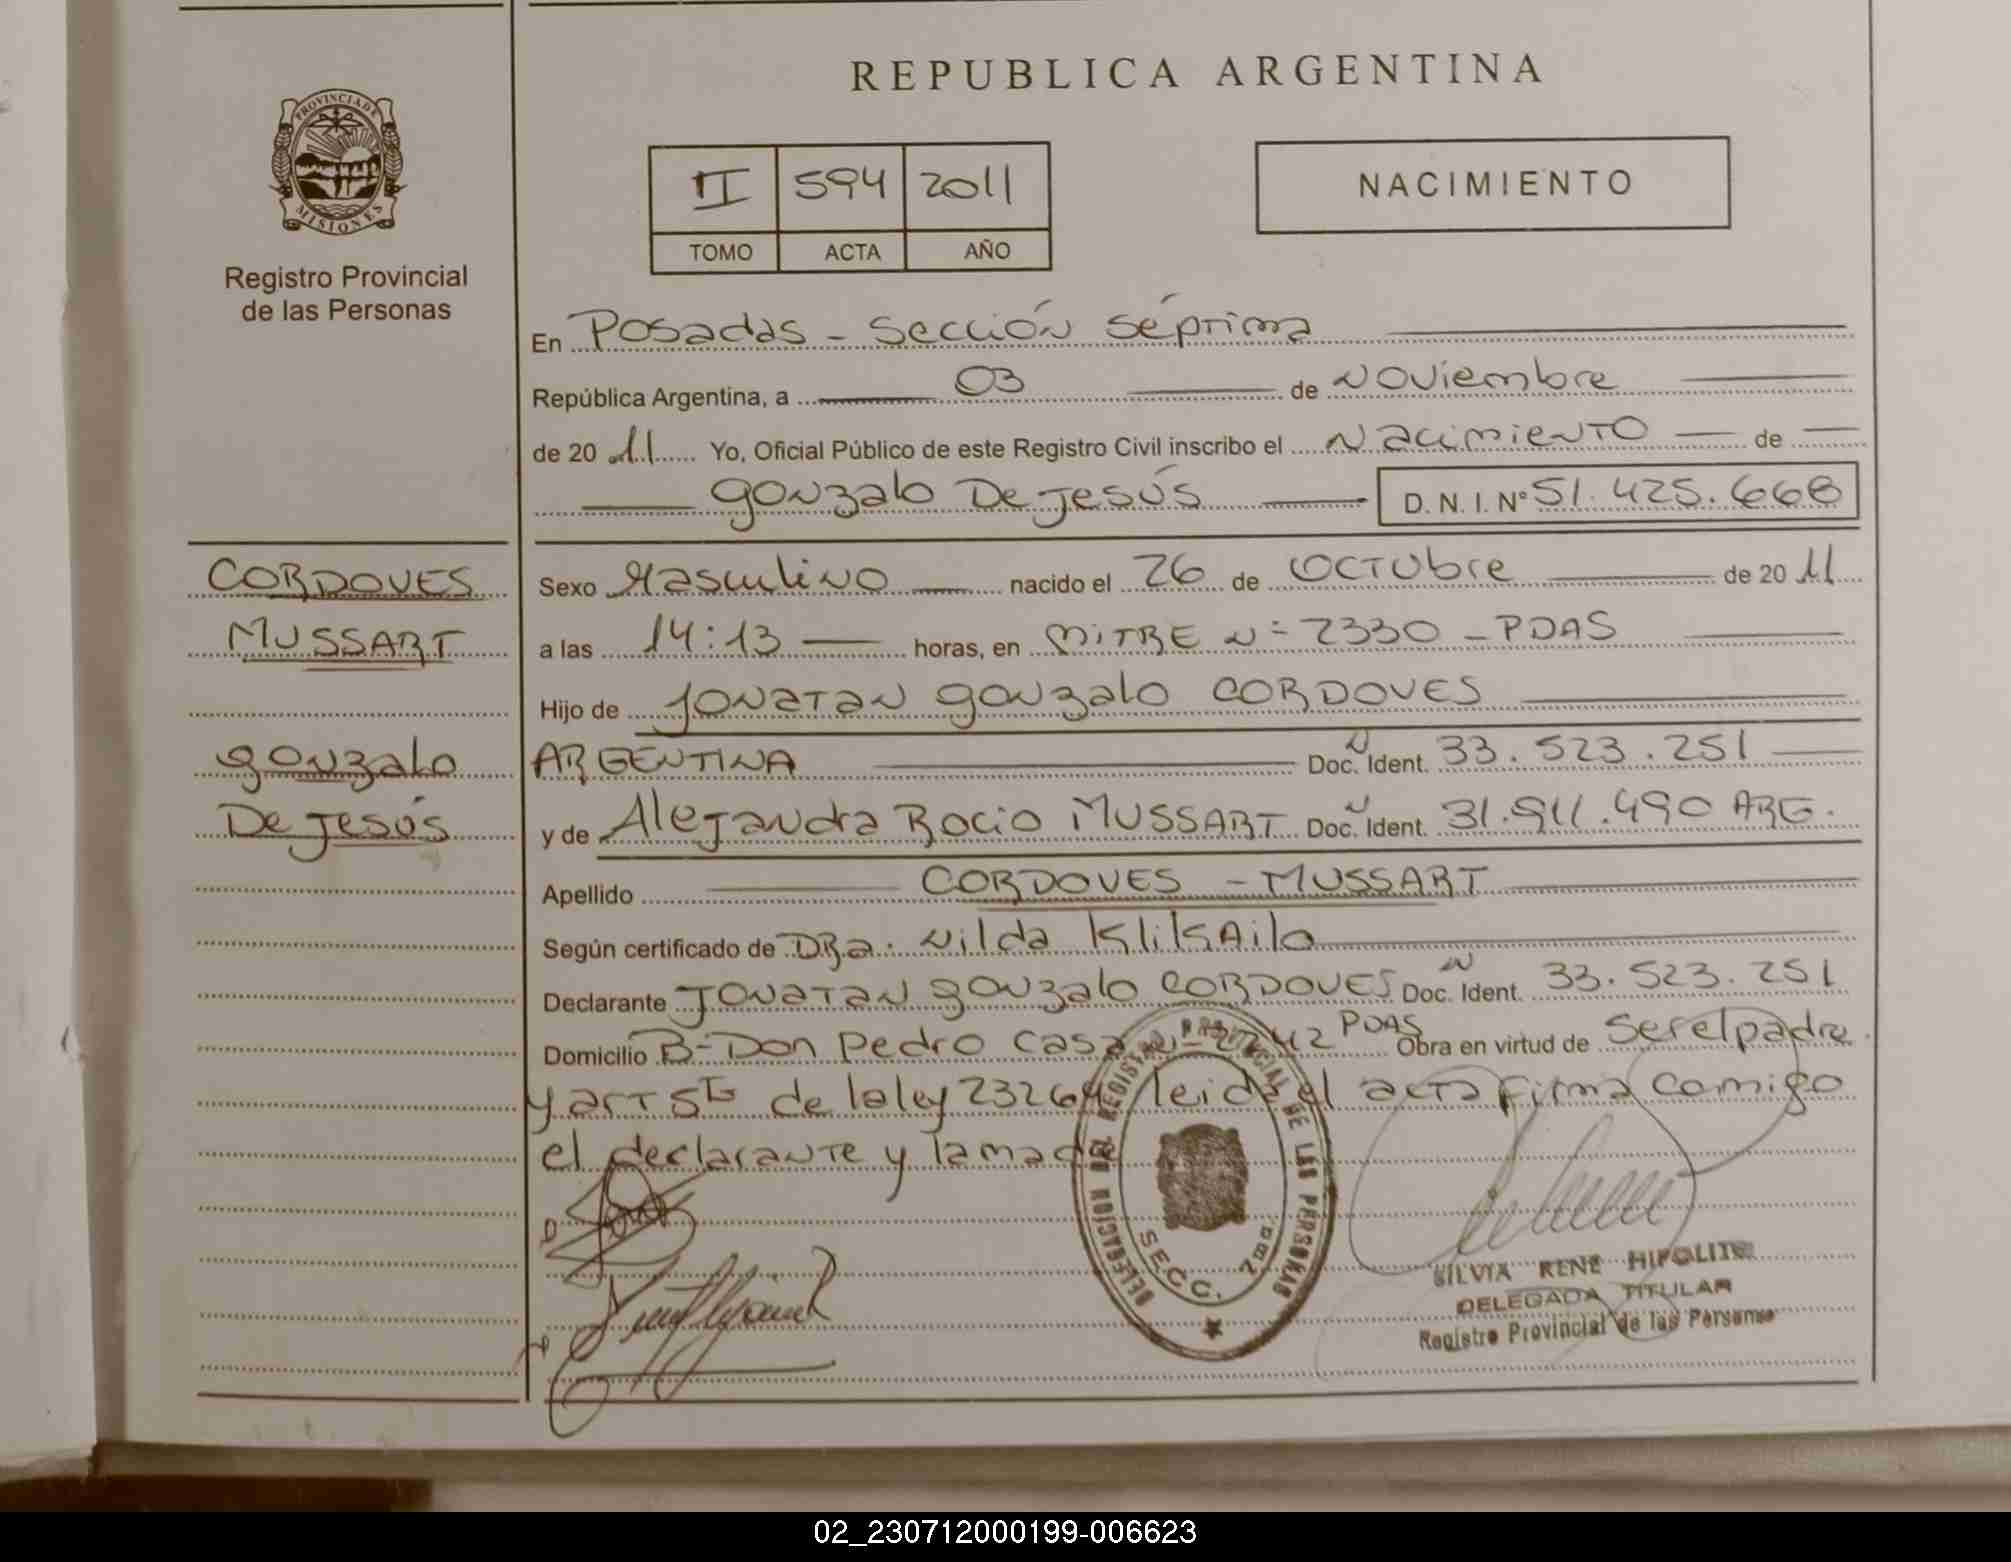 REPUBLICA ARGENTINA
PROVINCIA DE
MISIONES
Registro Provincial
de las Personas
II 594 2011
TOMO ACTA AÑO
NACIMIENTO
En Posadas - Sección Séptima
República Argentina, a 03 de Noviembre
de 20 11 Yo, Oficial Público de este Registro Civil inscribo el Nacimiento de
Gonzalo De Jesús D. N. I. Nº 51.425.668
CORDOVES
MUSSART
Gonzalo
De Jesús
Sexo Masculino nacido el 26 de Octubre de 20 11
a las 14:13 horas, en MITRE Nº 2330 - PDAS
Hijo de Jonatan Gonzalo CORDOVES
ARGENTINA Doc. N Ident. 33.523.251
y de Alejandra Rocio MUSSART Doc. N Ident. 31.911.490 ARG.
Apellido CORDOVES - MUSSART
Según certificado de DRa. Nilda Kliksailo
Declarante Jonatan Gonzalo CORDOVES Doc. N Ident. 33.523.251
Domicilio B- Don Pedro Casa Nº 2242 PDAS Obra en virtud de ser el padre
y art 5to de la ley 23264 leida el acta firma comigo
el declarante y la madre
DELEGACION DEL REGISTRO PROVINCIAL DE LAS PERSONAS
SECC. 7ma.
SILVIA RENE HIPOLITO
DELEGADA TITULAR
Registro Provincial de las Personas
02_230712000199-006623